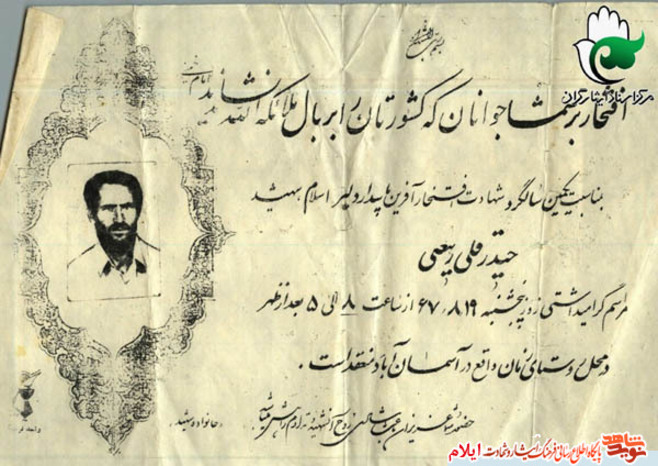 بسم رب الشهداء
مرکز اسناد ایثارگران
افتخار بر شما جوانان که کشورتان را بر بال ملائکه الله نشاندید
امام خمینی
بمناسبت یکمین سالگرد شهادت افتخار آفرین پاسدار دلیر اسلام شهید
حیدر قلی ربیعی
مراسم گرامیداشتی روز پنجشنبه ۶۷،۸،۱۹ از ساعت ۸ الی ۵ بعد از ظهر
در محل روستای زمان واقع در آسمان آباد منعقد است .
حضور شما عزیزان
«خانواده شهید»
نوید شاهد
پایگاه اطلاع رسانی فرهنگ ایثار و شهادت ایلام